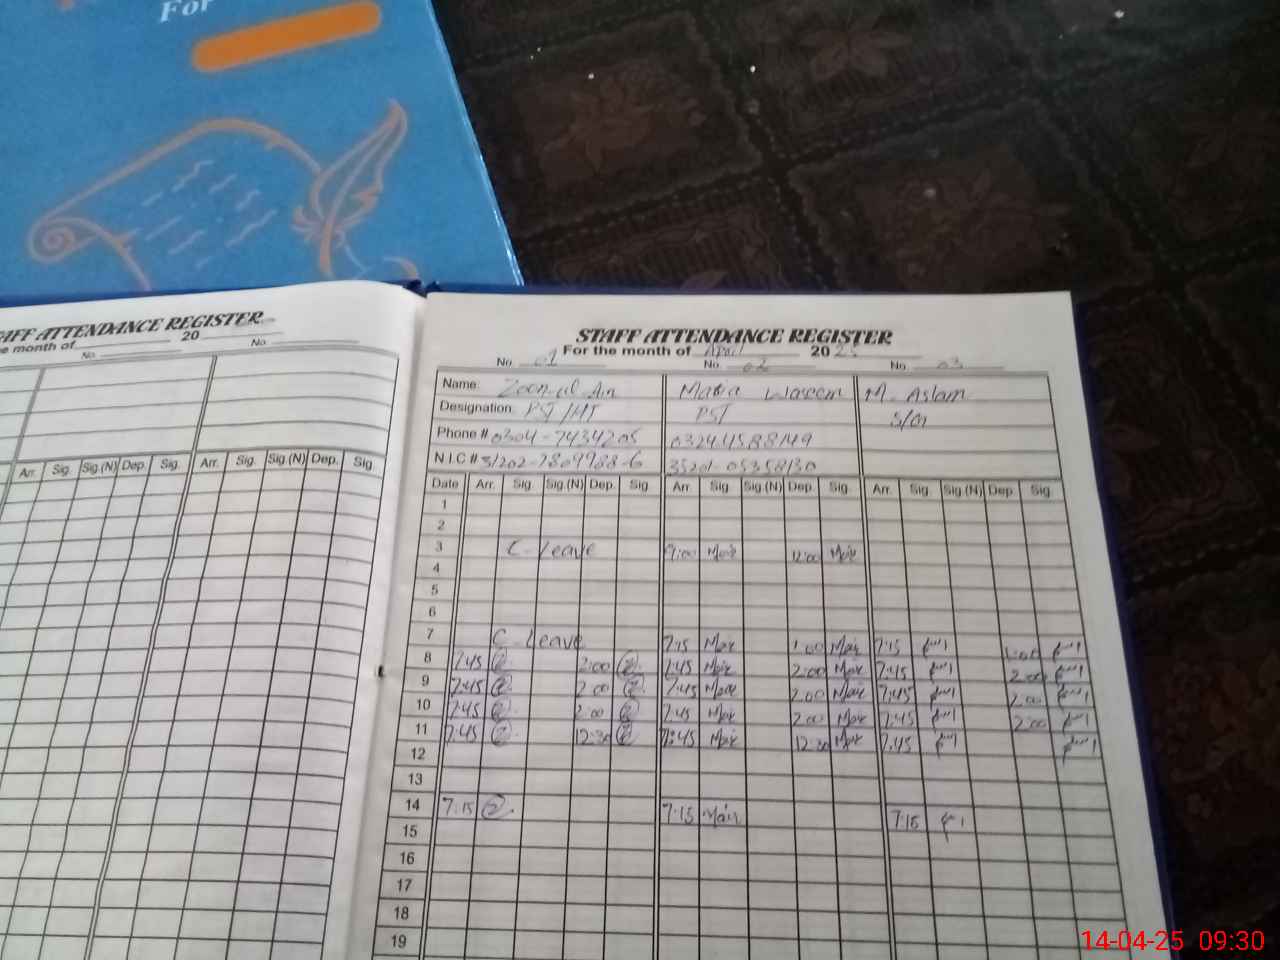 For
STAFF ATTENDANCE REGISTER
the month of 20
No. No.
Arr. Sig. Sig.(N) Dep. Sig. Arr. Sig. Sig.(N) Dep. Sig.
STAFF ATTENDANCE REGISTER
For the month of April 2025
No. 01 No. 02 No. 03
Name: Zoon ul Ain Maria waseem M. Aslam
Designation: PST/HT PST
Phone # 0304-7434205 03244588149
N.I.C # 31202-7809988-6 35201-05358130
Date Arr. Sig. Sig.(N) Dep. Sig. Arr. Sig. Sig.(N) Dep. Sig. Arr. Sig. Sig.(N) Dep. Sig.
1
2
3 C-Leave 9:00 12:00
4
5
6
7 C-Leave 7:15 1:00 7:15 1:00
8 7:45 2:00 7:45 2:00 7:45 2:00
9 7:45 2:00 7:45 2:00 7:45 2:00
10 7:45 2:00 7:45 2:00 7:45 2:00
11 7:45 12:30 7:45 12:30 7:45
12
13
14 7:15 7:15 7:15
15
16
17
18
19
14-04-25 09:30